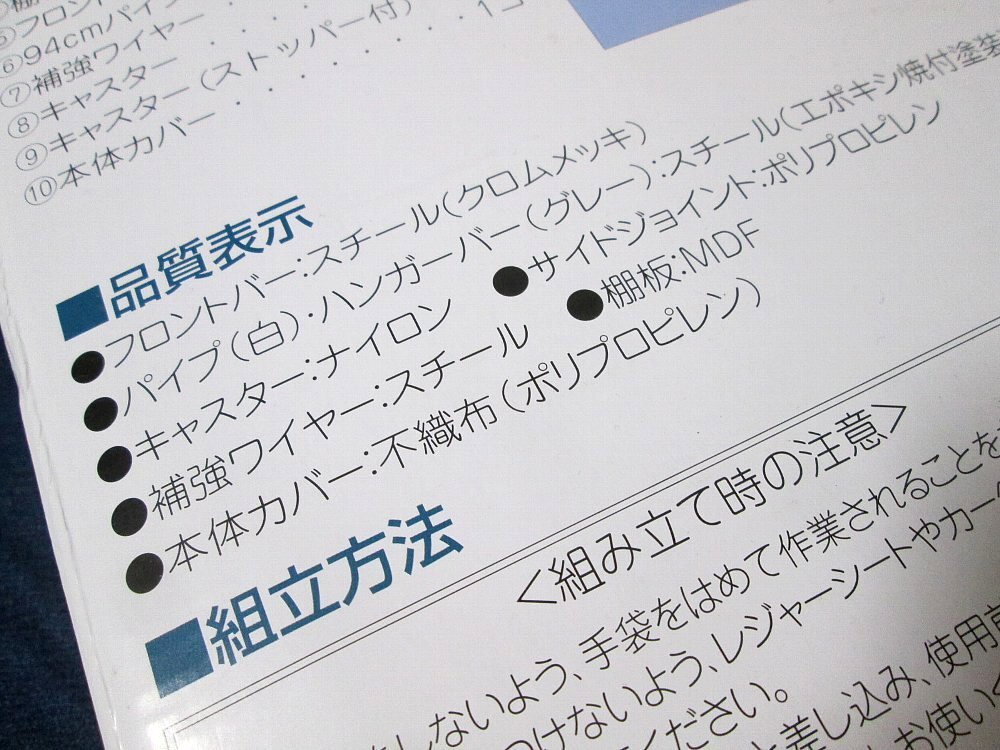 ⑤フロント
⑥94cmパイプ
⑦補強ワイヤー・・
⑧キャスター・・・・
⑨キャスター(ストッパー付)・・・1コ
⑩本体カバー・・・・・・
■品質表示
●フロントバー:スチール(クロムメッキ)
●パイプ(白)・ハンガーバー(グレー):スチール(エポキシ焼付塗装
●キャスター:ナイロン ●サイドジョイント:ポリプロピレン
●補強ワイヤー:スチール ●棚板:MDF
●本体カバー:不織布(ポリプロピレン)
■組立方法
<組み立て時の注意>
しないよう、手袋をはめて作業されることを
つけないよう、レジャーシートやカー
ください。
差し込み、使用前
お使いく